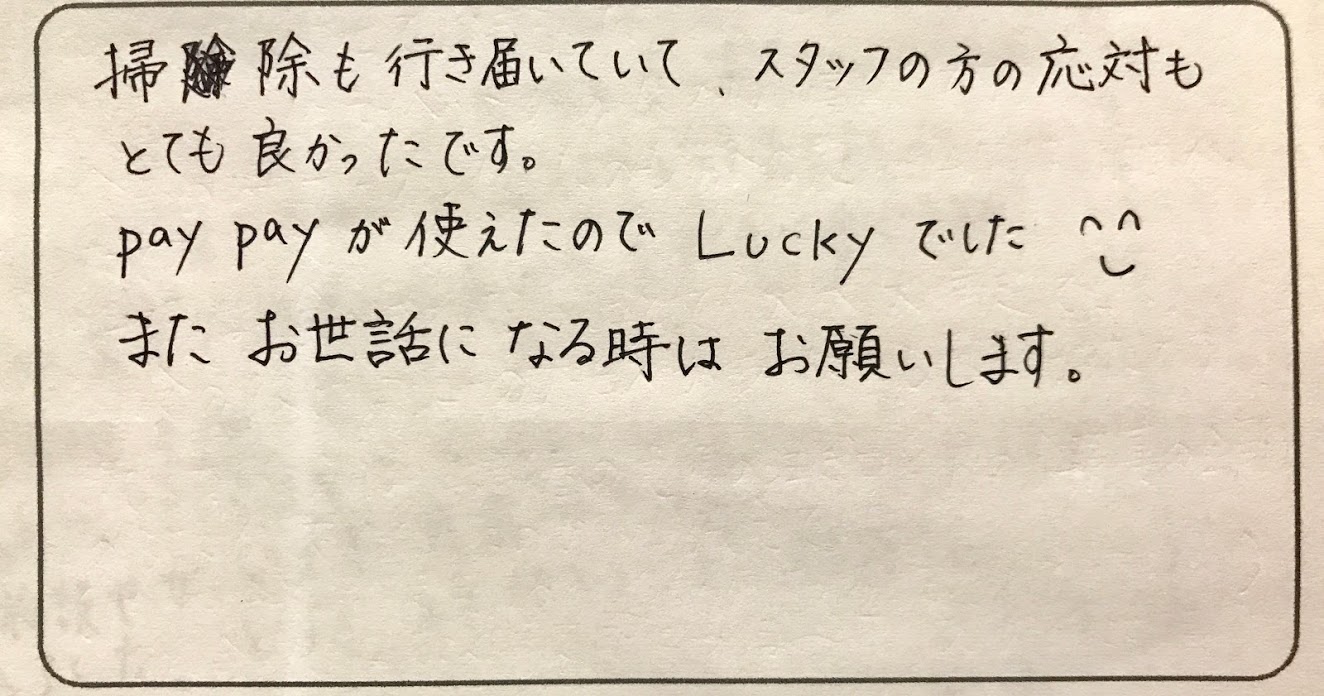 掃除も行き届いていて、スタッフの方の応対も
とても良かったです。
pay pay が使えたので Lucky でした
また お世話に なる時は お願いします。